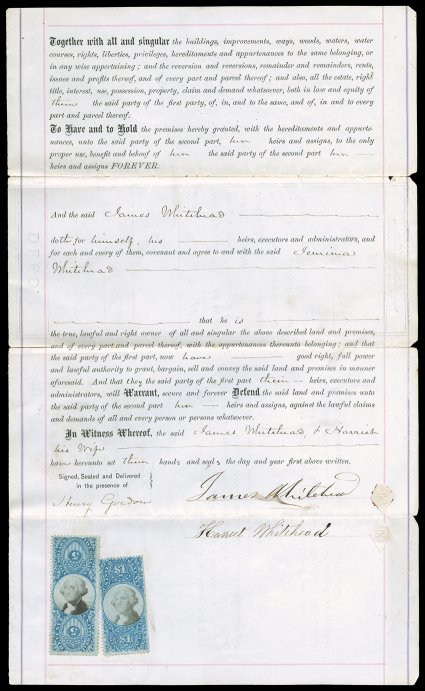 Together with all and singular the buildings, improvements, ways, woods, waters, water
courses, rights, liberties, privileges, hereditaments and appurtenances to the same belonging, or
in any wise appertaining; and the reversion and reversions, remainder and remainders, rents,
issues and profits thereof, and of every part and parcel thereof; and also, all the estate, right
title, interest, use, possession, property, claim and demand whatsoever, both in law and equity of
them the said party of the first part, of, in, and to the same, and of, in and to every
part and parcel thereof.
To Have and to Hold the premises hereby granted, with the hereditaments and appurte-
nances, unto the said party of the second part, her heirs and assigns, to the only
proper use, benefit and behoof of her the said party of the second part her
heirs and assigns FOREVER.
And the said James Whitehead
doth for himself, his heirs, executors and administrators, and
for each and every of them, covenant and agree to and with the said Jemima
Whitehead
that he is
the true, lawful and right owner of all and singular the above described land and premises,
and of every part and parcel thereof, with the appurtenances thereunto belonging; and that
the said party of the first part, now have good right, full power
and lawful authority to grant, bargain, sell and convey the said land and premises in manner
aforesaid. And that they the said party of the first part their heirs, executors and
administrators, will Warrant, secure and forever Defend the said land and premises unto
the said party of the second part her heirs and assigns, against the lawful claims
and demands of all and every person or persons whatsoever.
In Witness Whereof, the said James Whitehead, & Harriet
his Wife
have hereunto set their hands and seals the day and year first above written.
Signed, Sealed and Delivered
in the presence of
Henry Gordon
James Whitehead
Harriet Whitehead
5
5
$1
$1